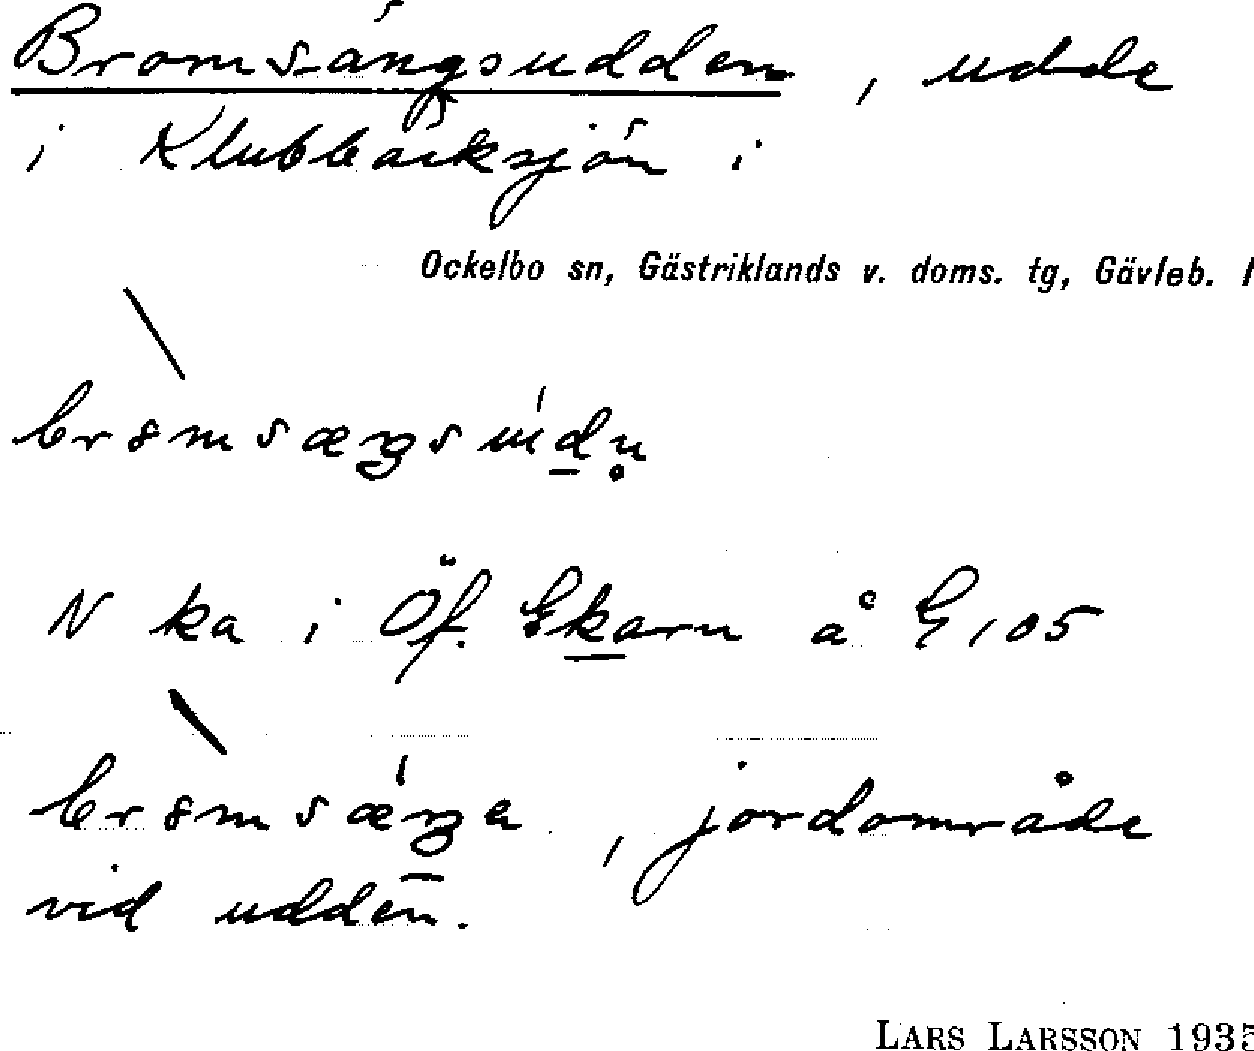 Bromsängsudden, udde
i Klubbäcksjön i
Ockelbo sn, Gästriklands v. doms. tg, Gävleb. l
N ka i Öf. Ekarn å E, 05
, jordområde
vid udden.
LARS LARSSON 1935